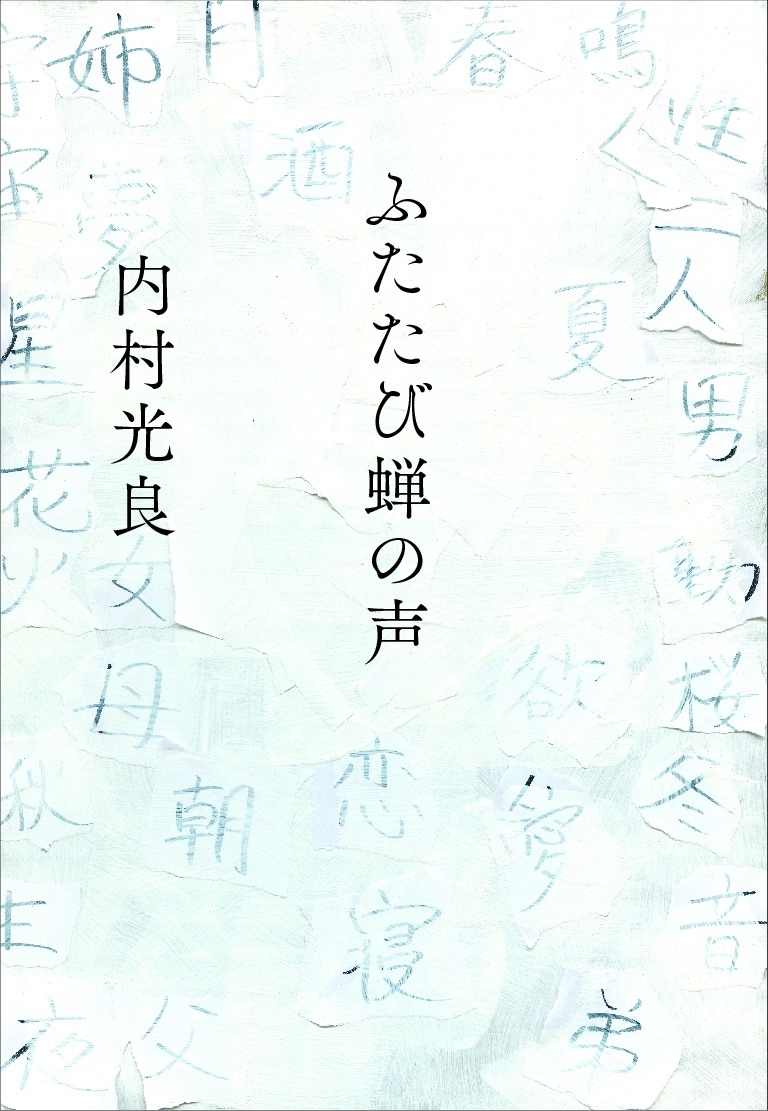 ふたたび蝉の声
内村光良
姉
月
春
鳴
く
性
宇
宙
夢
酒
二人
夏
星
男
花火
女
動
母
欲
桜
秋
朝
恋
愛
冬
生
寝
音
夜
父
弟